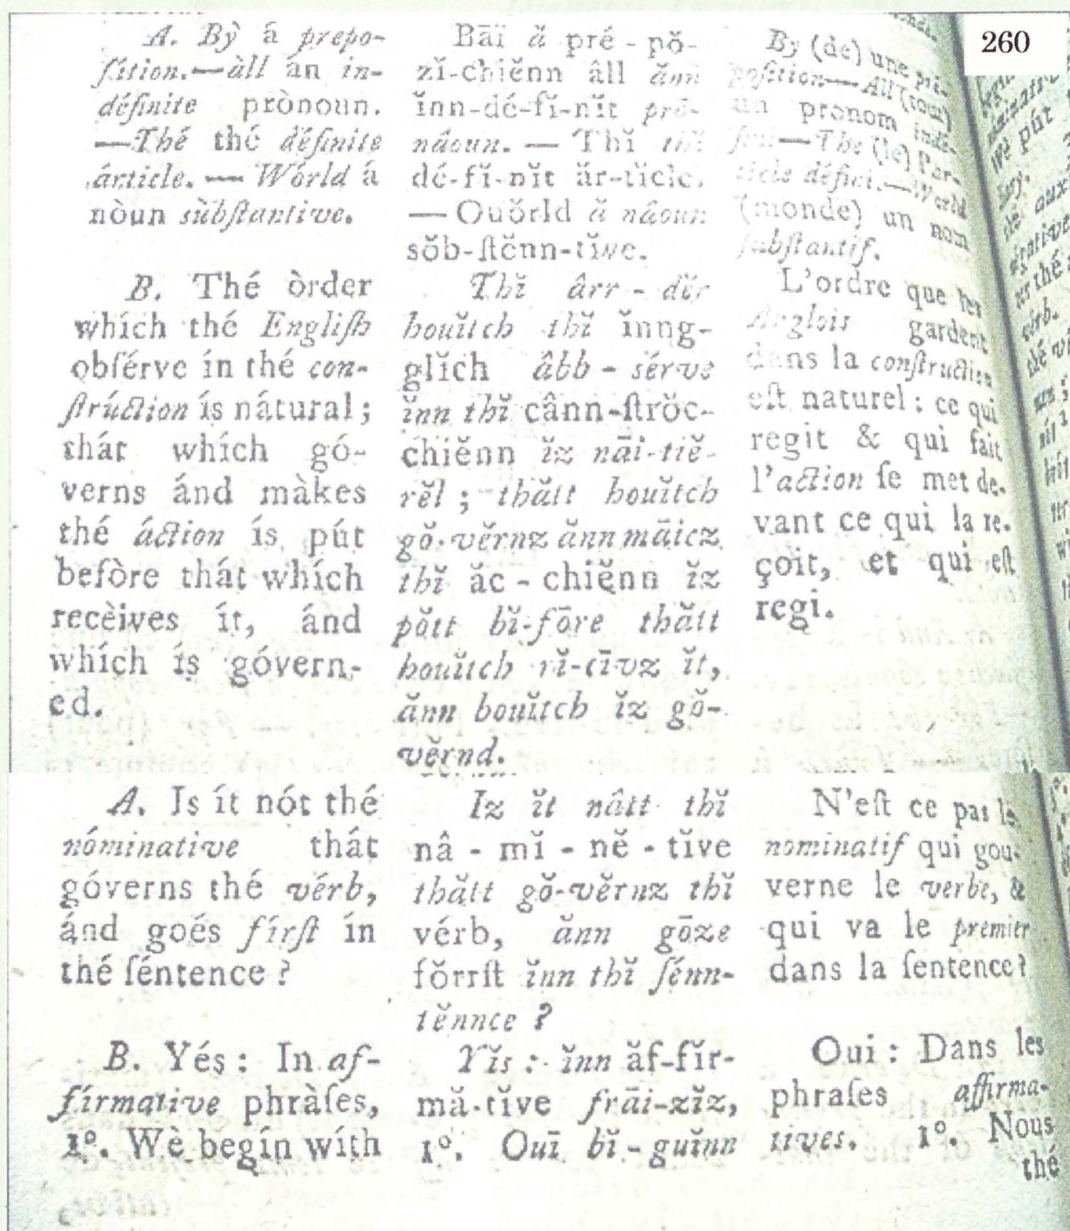 260
A. Bỳ á prepo-
ſítion.—àll án in-
définite prònoun.
—Thé thé définite
árticle. — World á
nòun sùbſtantive.
B. Thé òrder
whích thé Engliſh
obſérve ín thé con-
ſtrúction ís nátural;
thát whích gó-
verns ánd màkes
thé áction ís pút
befòre thát whích
recèives ít, ánd
whích ís góvern-
ed.
A. Is ít nót thé
nóminative thát
góverns thé vérb,
ánd goés fírſt ín
thé ſéntence ?
B. Yés : In af-
fírmative phràſes,
1º. Wè begin wíth
Bāī ă pré - pŏ-
zĭ-chiĕnn âll ănn
ĭnn-dé-fĭ-nĭt prō-
nâoun. — Thĭ thĭ
dé-fĭ-nĭt ăr-tĭcle.
— Ouŏrld ă nâoun
sŏb-ſtĕnn-tĭve.
Thĭ ârr - dĕr
houĭtch thĭ ĭnng-
glĭch âbb - sérve
ĭnn thĭ cânn-ſtrŏc-
chiĕnn ĭz nāi-tiĕ-
rĕl ; thătt houĭtch
gŏ-vĕrnz ănn māicz
thĭ ăc - chiĕnn ĭz
pŏtt bĭ-fōre thătt
houĭtch rĭ-cīvz ĭt,
ănn houĭtch ĭz gŏ-
vĕrnd.
Iz ĭt nâtt thĭ
nâ - mĭ - nĕ - tĭve
thătt gŏ-vĕrnz thĭ
vérb, ănn gōze
fŏrrſt ĭnn thĭ ſénn-
tĕnnce ?
Yĭs : ĭnn ăf-fĭr-
mă-tĭve frāi-zĭz,
1º. Ouī bĭ - guĭnn
By (de) une pré-
poſition— All (tout)
un pronom indé-
fini—The (le) l'ar-
ticle défini.—World
(monde) un nom
ſubſtantif.
L'ordre que les
Anglois gardent
dans la conſtruction
eſt naturel : ce qui
regit & qui fait
l'action ſe met de-
vant ce qui la re-
çoit, et qui eſt
regi.
N'eſt ce pas le
nominatif qui gou-
verne le verbe, &
qui va le premier
dans la ſentence?
Oui : Dans les
phraſes affirma-
tives. 1º. Nous
thé